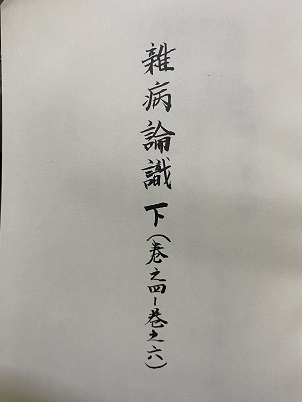 雜病論識下(巻之四-巻之六)